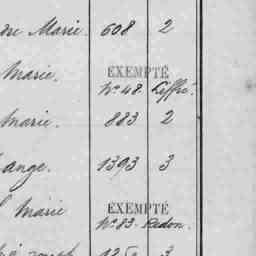 Marie. 608 2
Marie. EXEMPTÉ
No. 48. Liffré.
Marie. 883 2
ange. 1393 3
Marie EXEMPTÉ
No. 83. Redon.
3